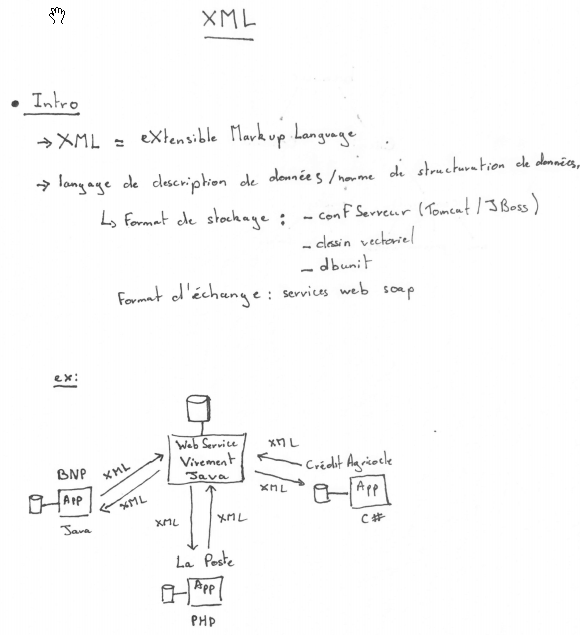 XML
• Intro
→ XML = eXtensible Markup Language
→ langage de description de données/norme de structuration de données,
↳ Format de stockage : - conf Serveur (Tomcat / JBoss)
- dessin vectoriel
- dbunit
Format d'échange : services web soap
ex:
Web Service
Virement
Java
XML
Crédit Agricole
BNP
XML
XML
App
XML
App
Java
C#
XML
XML
La Poste
App
PHP